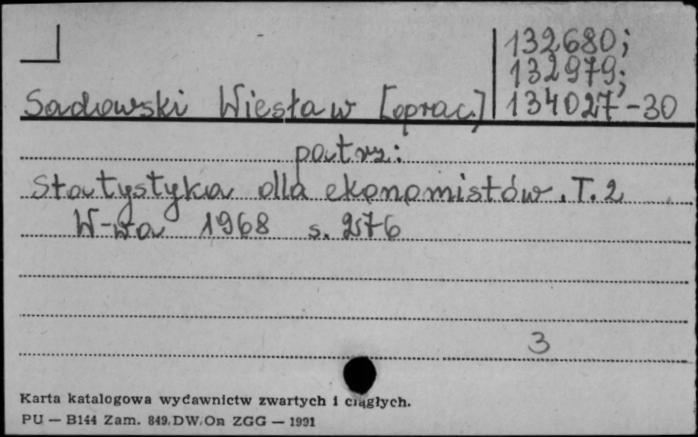 132680;
132979;
Sadowski Wiesław [oprac.] 134027-30
patrz:
Statystyka dla ekonomistów. T. 2
W-wa 1968 s. 276
3
Karta katalogowa wydawnictw zwartych i ciągłych.
PU — B144 Zam. 849. DW. On ZGG — 1991